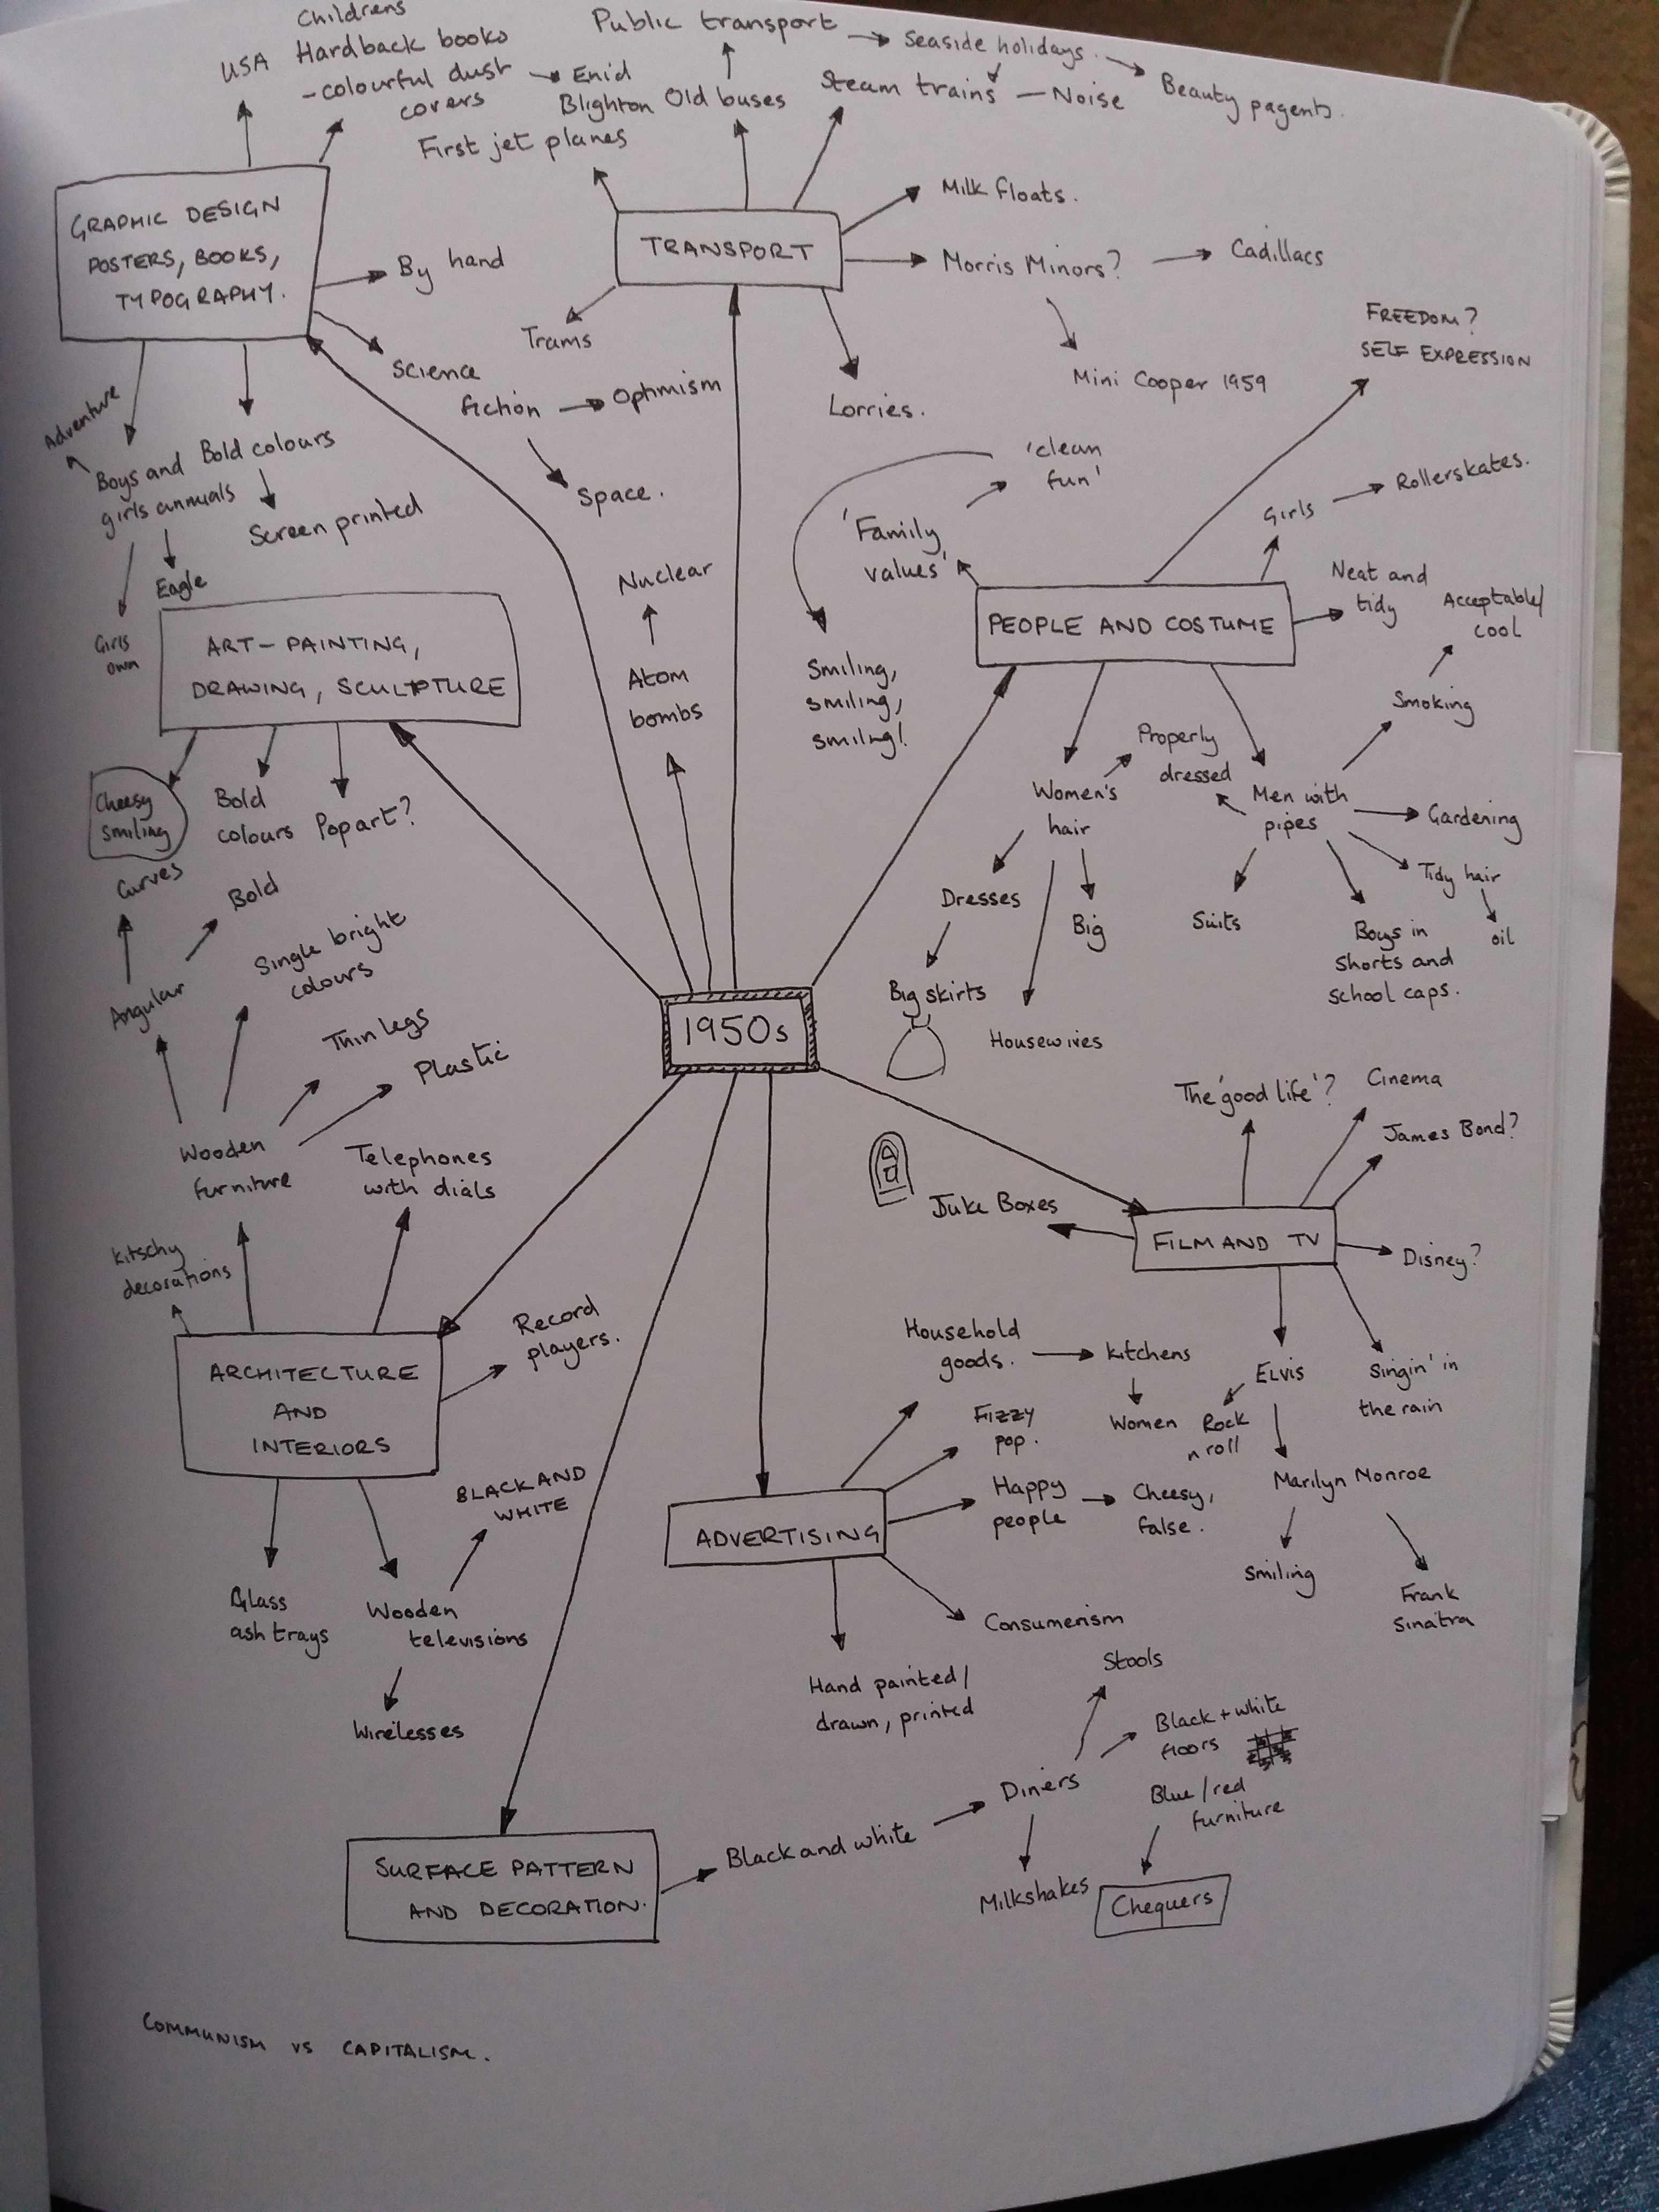 Childrens
Hardback books
- colourful dust
covers
USA
Enid
Blighton
Public transport
Seaside holidays.
Beauty pagents.
Old buses
Steam trains - Noise
First jet planes
GRAPHIC DESIGN
POSTERS, BOOKS,
TYPOGRAPHY.
By hand
Science
fiction
Optimism
Space.
TRANSPORT
Milk floats.
Morris Minors?
Cadillacs
Mini Cooper 1959
Trams
Lorries.
Adventure
Boys and
girls annuals
Bold colours
Screen printed
Eagle
Girls
own
FREEDOM?
SELF EXPRESSION
'clean
fun'
'Family
values'
Girls
Rollerskates.
PEOPLE AND COSTUME
Neat and
tidy
Acceptable/
cool
Smoking
Smiling,
smiling,
smiling!
Nuclear
Atom
bombs
ART - PAINTING,
DRAWING, SCULPTURE
Cheesy
smiling
Bold
colours
Pop art?
Women's
hair
Properly
dressed
Men with
pipes
Gardening
Tidy hair
oil
Dresses
Big
Suits
Boys in
shorts and
school caps.
Big skirts
Housewives
Curves
Bold
Angular
Single bright
colours
Thin legs
Plastic
Wooden
furniture
Telephones
with dials
1950s
The 'good life'?
Cinema
James Bond?
Juke Boxes
FILM AND TV
Disney?
Kitschy
decorations
ARCHITECTURE
AND
INTERIORS
Record
players.
Household
goods.
Kitchens
Women
ELVIS
Rock
n roll
Singin' in
the rain
Fizzy
pop.
Happy
people
Cheesy,
false.
Marilyn Monroe
Smiling
Frank
Sinatra
BLACK AND
WHITE
ADVERTISING
Glass
ash trays
Wooden
televisions
Wirelesses
Consumerism
Hand painted/
drawn, printed
Stools
Black + white
floors
Diners
Blue/red
furniture
SURFACE PATTERN
AND DECORATION.
Black and white
Milkshakes
Chequers
COMMUNISM VS CAPITALISM.